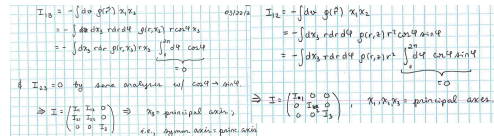 I₁₃ = -∫dv ρ(r⃗) x₁x₃
= -∫dx₃ rdrdφ ρ(r,x₃) r cosφ x₃
= -∫dx₃ rdr ρ(r,x₃) r x₃ ∫₀^2π dφ cosφ
=0
& I₂₃=0 by same analysis w/ cosφ → sinφ
⇒ I = (I₁₁ I₁₂ 0
I₂₁ I₂₂ 0
0 0 I₃) ⇒ x₃=principal axis;
i.e., symm. axis=princ. axis
03/22/2
I₁₂ = -∫dv ρ(r⃗) x₁x₂
= -∫dx₃ rdrdφ ρ(r,x₃) r² cosφ sinφ
= -∫dx₃ rdr ρ(r,x₃) r² ∫₀^2π dφ cosφ sinφ
=0
⇒ I = (I₁₁ 0 0
0 I₂₂ 0
0 0 I₃), x₁,x₂,x₃ = principal axes.